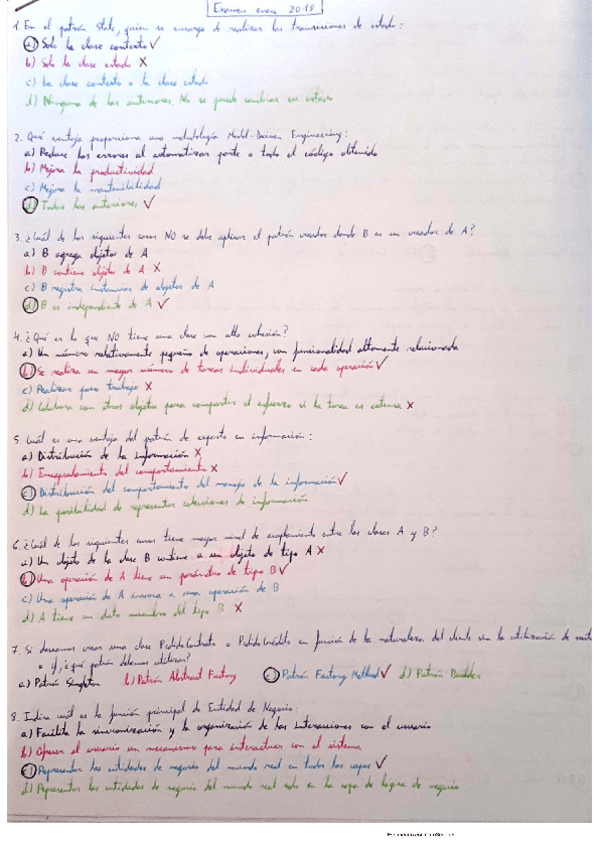 Examen enero 2018
1. En el patrón State, quien se encarga de realizar las transiciones de estado:
a) Solo la clase contexto ✓
b) Solo la clase estado X
c) La clase contexto o la clase estado
d) Ninguna de las anteriores. No se puede cambiar su estado
2. Qué ventaja proporciona una metodología Model-Driven Engineering:
a) Reduce los errores al automatizar parte o todo el código obtenido
b) Mejora la productividad
c) Mejora la mantenibilidad
d) Todas las anteriores ✓
3. ¿Cuál de los siguientes casos NO se debe aplicar el patrón creador donde B es un creador de A?
a) B agrega objetos de A
b) B contiene objetos de A X
c) B registra instancias de objetos de A
d) B es independiente de A ✓
4. ¿Qué es lo que NO tiene una clase con alta cohesión?
a) Un número relativamente pequeño de operaciones, con funcionalidad altamente relacionada
b) Se realiza un mayor número de tareas individuales en cada operación ✓
c) Realizar poco trabajo X
d) Colabora con otros objetos para compartir el esfuerzo si la tarea es extensa X
5. Cuál es una ventaja del patrón de experto en información:
a) Distribución de la información X
b) Encapsulamiento del comportamiento X
c) Distribución del comportamiento del manejo de la información ✓
d) La posibilidad de representar colecciones de información
6. ¿Cuál de los siguientes casos tiene mayor nivel de acoplamiento entre las clases A y B?
a) Un objeto de la clase B contiene a un objeto de tipo A X
b) Una operación de A tiene un parámetro de tipo B ✓
c) Una operación de A invoca a una operación de B
d) A tiene un dato miembro del tipo B X
7. Si deseamos crear una clase PedidoContado o PedidoCrédito en función de la naturaleza del cliente sin la utilización de
o if, ¿qué patrón debemos utilizar?
a) Patrón Singleton b) Patrón Abstract Factory c) Patrón Factory Method ✓ d) Patrón Builder
8. Indica cuál es la función principal de Entidad de Negocio:
a) Facilita la sincronización y la organización de las interacciones con el usuario
b) Ofrecer al usuario un mecanismo para interactuar con el sistema
c) Representar las entidades de negocio del mundo real en todas las capas ✓
d) Representar las entidades de negocio del mundo real solo en la capa de lógica de negocio